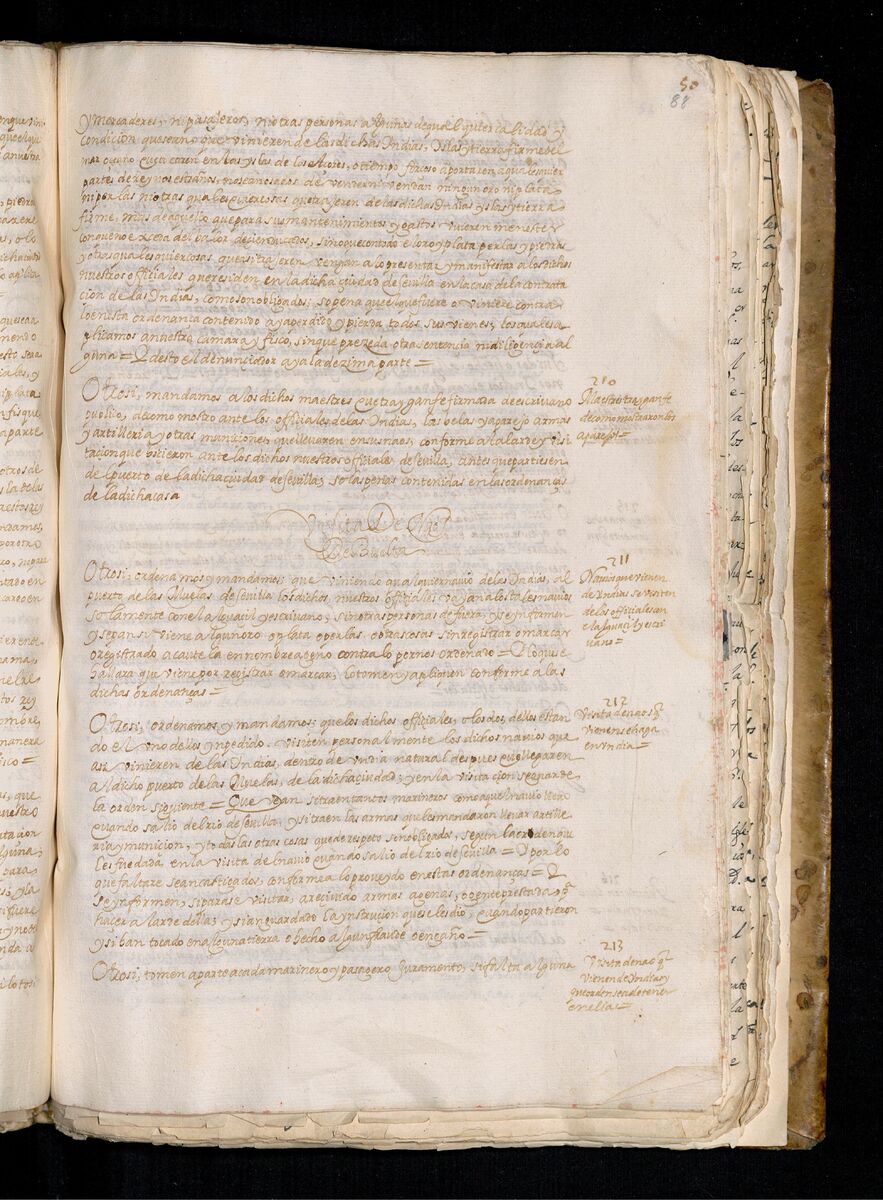 50
88
y mercaderes, ni pasajeros, ni otras personas algunas de qualquier calidad y
condicion que sean, que vinieren de las dichas Indias, yslas y tierra firme del
mar oceano que tocaren en las yslas de los Açores, o tiempo forçoso aportaren a qualesquier
partes de reynos estraños, no sean osados de vender ni vendan ningun oro ni plata
ni perlas ni otras qualesquier cosas que trajeren de las dichas Indias yslas y tierra
firme, mas de aquello que para sus mantenimientos y gastos uvieren menester
con que no exceda del balor de cien ducados, sino que con todo el oro y plata perlas y piedras
y otras qualesquier cosas, que asi trajeren vengan a lo presentar y manifestar a los dichos
nuestros officiales que residen en la dicha çiudad de sevilla en la casa de la contrata
cion de las Indias, como son obligados, so pena que el que fuere o viniere contra
lo en esta ordenança contenido aya perdido y pierda todos sus vienes, los quales a
plicamos a nuestra camara y fisco, sin que preceda otra sentencia ni diligencia al
guna = Y desto el denunciador aya la dezima parte =
Otrosi, mandamos a los dichos maestres que traygan fe firmada de escrivano
publico, de como mostro ante los officiales de las Indias, las belas y aparejo armas
y artilleria y otras municiones, que llevaren en sus naos, conforme al alarde y visi
tacion que hicieron ante los dichos nuestros officiales de sevilla, antes que partiesen
del puerto de la dicha çiudad de sevilla, so las penas contenidas en las ordenanças
de la dicha casa
210
Maestros traygan fe
de como mostraron los
aparejos =
Visita De Naos
De Buelta
Otrosi, ordenamos y mandamos, que viniendo qualquier navio de las Indias, al
puerto de las Muelas de sevilla los dichos nuestros officiales vayan a los tales navios
solamente con el alguacil y escrivano, y sin otras personas de fuera, y se ynformen
y sepan si viene algun oro o plata o perlas, o otras cosas sin registrar o marcar
o registrado a caute la en nombre ageno contra lo por nos ordenado = Y lo que se
hallara que viene por registrar o marcar, lo tomen y apliquen conforme a las
dichas ordenanças =
211
Navios que vienen
de Yndias se visiten
de los officiales con
el alguaçil y escri
vano =
Otrosi, ordenamos y mandamos, que los dichos officiales, o los dos dellos estan
do el uno dellos ynpedido, visiten personalmente los dichos navios que
asi vinieren de las Indias, dentro de un dia natural despues que llegaren
al dicho puerto de las Muelas, de la dicha çiudad, y en la visitacion se guarde
la orden siguiente = Que vean si traen tantos marineros como aquel navio llevo
quando salio del rio de sevilla, y si traen las armas que les mandaron llevar artille
ria y municion, y todas las otras cosas que de respeto son obligados, segun la orden que
les fue dada en la visita del navio quando salio del rio de sevilla = Y por lo
que faltare sean castigados, conforme a lo proveydo en estas ordenanças = Y
se ynformen, si para se visitar, a recivido armas agenas, o gente prestada, para
hacer alarde della, y si an guardado la ynstrucion que se les dio, quando partieron
y si han tocado en alguna tierra o hecho algun fraude o engaño =
212
Visita de naos que
vienen se haga
en un dia =
Otrosi, tomen aparte a cada marinero y pasagero juramento, si falta alguna
213
Visita de nao que
viene de Yndias y
que orden se a de tener
en ella =